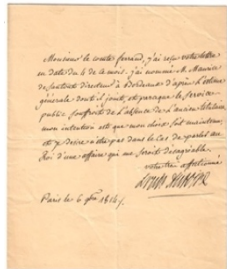 Monsieur le comte ferrand, j'ai reçu votre lettre
en date du 4 de ce mois. j'ai nommé M. Maurice
de fontenet directeur à Bordeaux d'après l'estime
générale dont il jouit, et parceque le service
public souffroit de l'absence de l'ancien titulaire,
mon intention est que mon choix soit maintenu,
et y desire n'être pas dans le cas de parler au
Roi d'une affaire qui me seroit désagréable.
votre affectionné
Paris le 6 1814